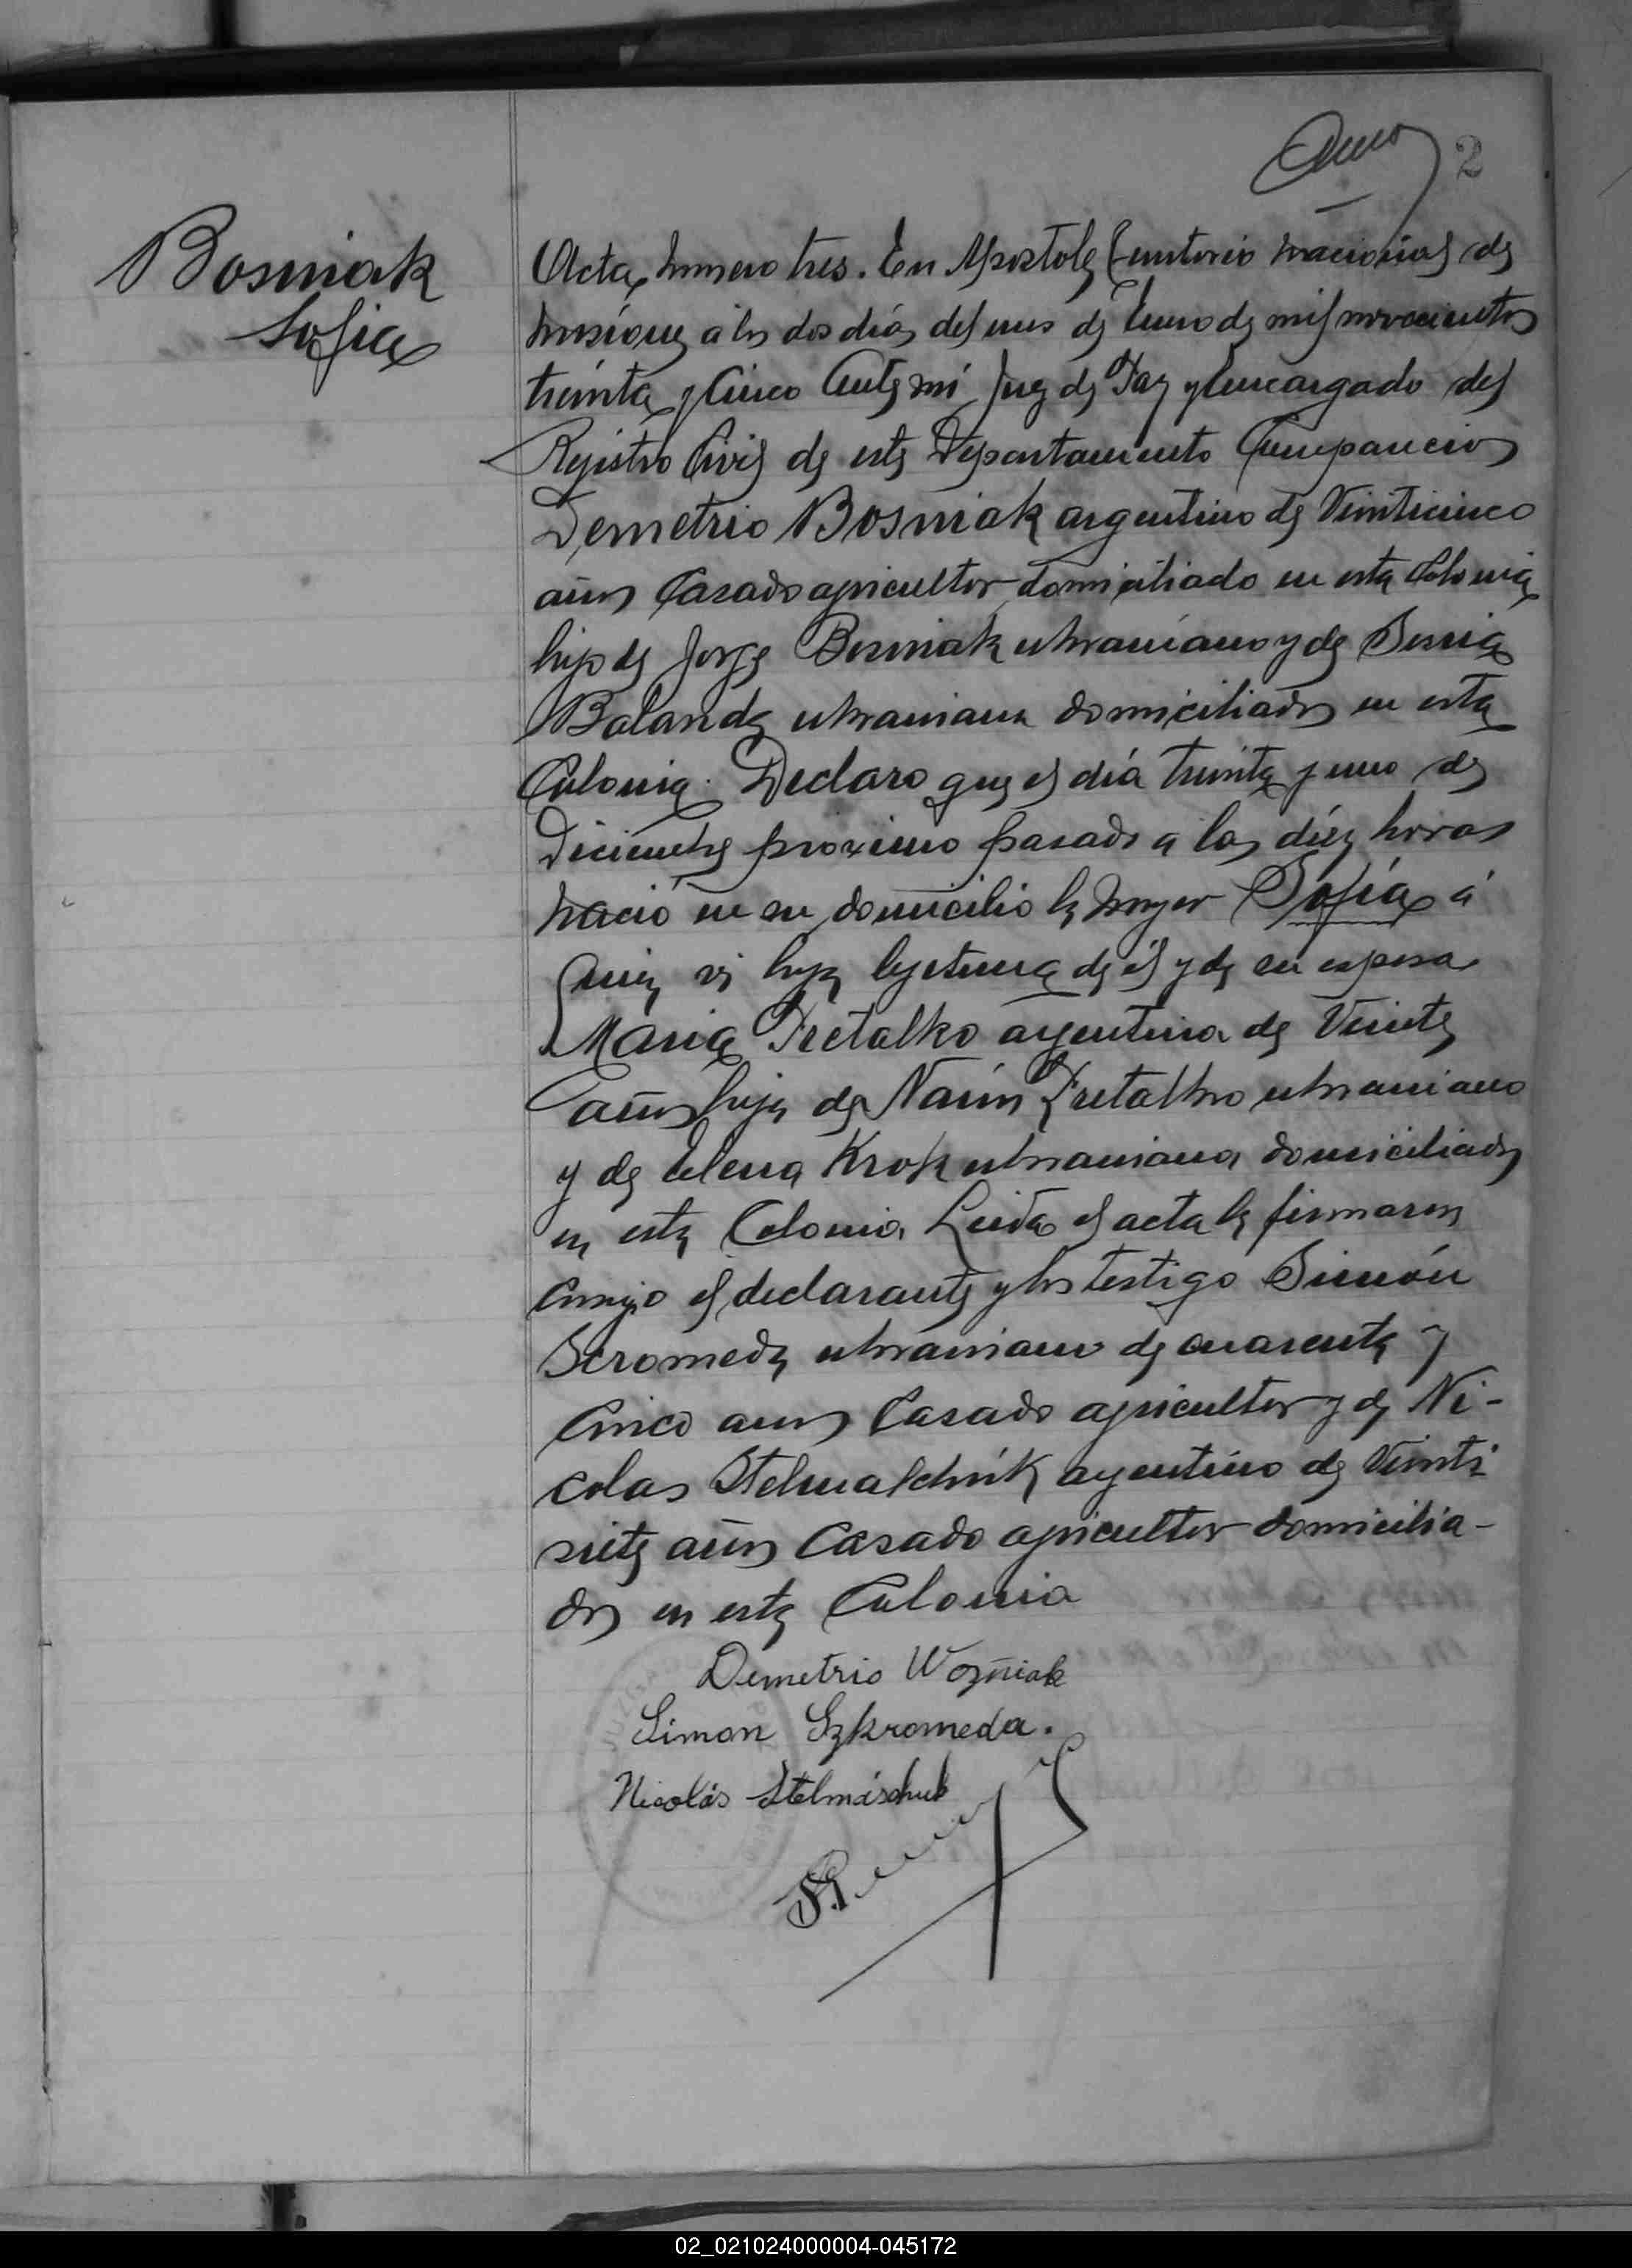 Enero 2
Bosniak
Sofia
Acta numero tres. En Apostoles territorio nacional de
misiones a los dos días del mes de Enero de mil novecientos
treinta y Cinco Ante mí Juez de Paz y Encargado del
Registro Civil de este Departamento Compareció
Demetrio Bosniak argentino de Veinticinco
años Casado agricultor domiciliado en esta Colonia
hijo de Jorge Bosniak ukraniano y de
Balanda ukraniana domiciliados en esta
Colonia. Declaro que el día treinta y uno de
Diciembre proximo pasado a las diez horas
nació en su domicilio la mujer Sofía á
quien es hija legitima de él y de su esposa
Maria Pretalko argentina de Veinte
años hija de Naún Pretalko ukraniano
y de Elena Krok ukraniana domiciliados
en esta Colonia Leida el acta la firmaron
conmigo el declarante y los testigo Simón
Scromeda ukraniano de cuarenta y
Cinco años Casado agricultor y de Ni-
colas Stelmalchuk argentino de Veinti
siete años Casado agricultor domicilia-
dos en esta Colonia
Demetrio Wozñiak
Simon Szkromeda.
Nicolás Stelmáschuk
02_021024000004-045172